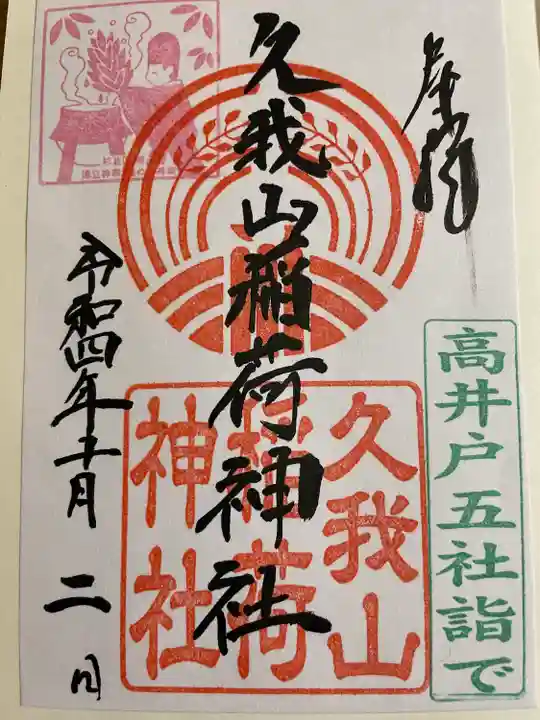 奉拝
高井戸五社詣で
久我山稲荷神社
久我山
稲荷
神社
令和四年十一月二日